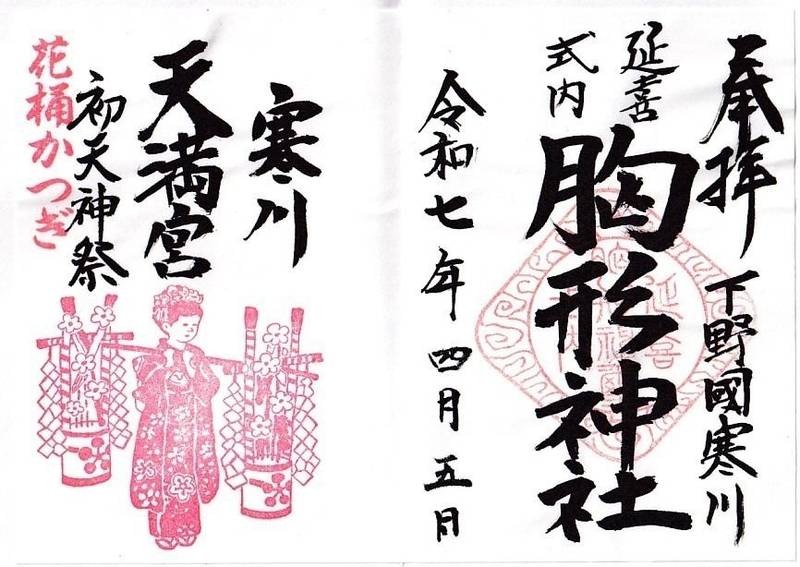 奉拝
下野國寒川
延喜
式内
胸形神社
令和七年四月五日
寒川
天満宮
初天神祭
花桶かつぎ